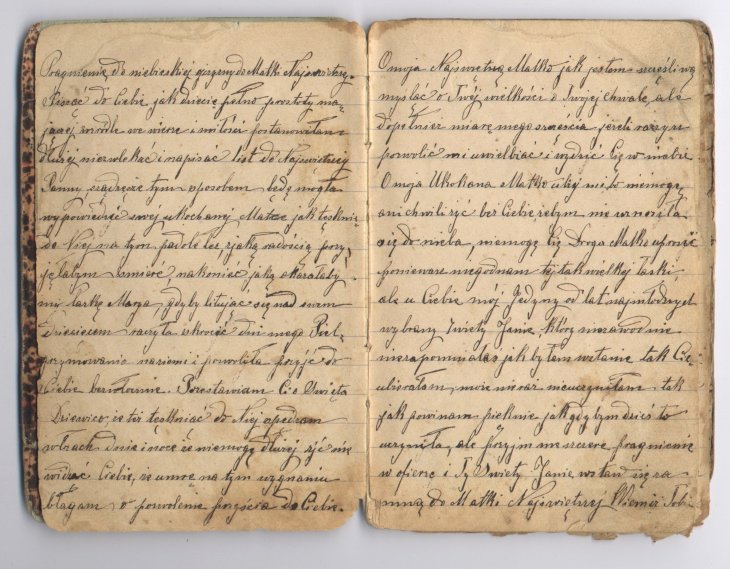 Pragnienie do niebieskiej ojczyzny do Matki Najświętszej
Pisząc do Ciebie jak dziecię pełno prostoty ma-
jącej źródło we wierze i miłości postanowiłam
dłużej nie zwlekać i napisać list do Najświętszej
Panny sządzęże tym sposobem będę mogła
wypowiedzieć swej ukochanej Matce jak tęsknie
do Niej na tym padole łez, z jaką radością przy-
jęłabym śmierć nakoniec jaką okazałaby
mi łaskę Marya gdyby litując się nad swem
Dziecięcem raczyła skrócić dni mego Piel-
grzymowania na ziemi i pozwoliła przyjść do
Ciebie bezwłocznie. Święta
Dziewico, iż też tęskniąc do Niej spędzam
w łzach dnie i noce że niemogę dłużej żyć nie
widząc Ciebie, że umrę na tym wygnaniu
błagam o pozwolenie przyjścia do Ciebie.
O moja Najświętszą Matko jak jestem szczęśliwą
myśląc o Twój wielkości o Twojej chwale, ale
dopełnisz miarę mego szczęścia jeżeli raczysz
pozwolić mi uwielbiać i wydzić Cię w niebie
O moja Ukohana Matko niemogę
ani chwili żyć bez Ciebie żebym nie wznosiła
się do nieba, niemogę Cię Droga Matko uprosić
ponieważ niegodnam tej tak wielkiej łaski,
ale u Ciebie mój Jedyny od lat najmłodszych
wybrany Święty Janie, który niezawodnie
niezapomniałeś jak byłam w stanie tak Cię
ubierałam, może nieraz nieuczyniłam tak
jak powinam pieknie jak gdybym dziś to
uczyniła, ale przyjm me szczere pragnienie
w ofierze i Ty Święty Janie wstaw się za
mną do Matki Najświętszej